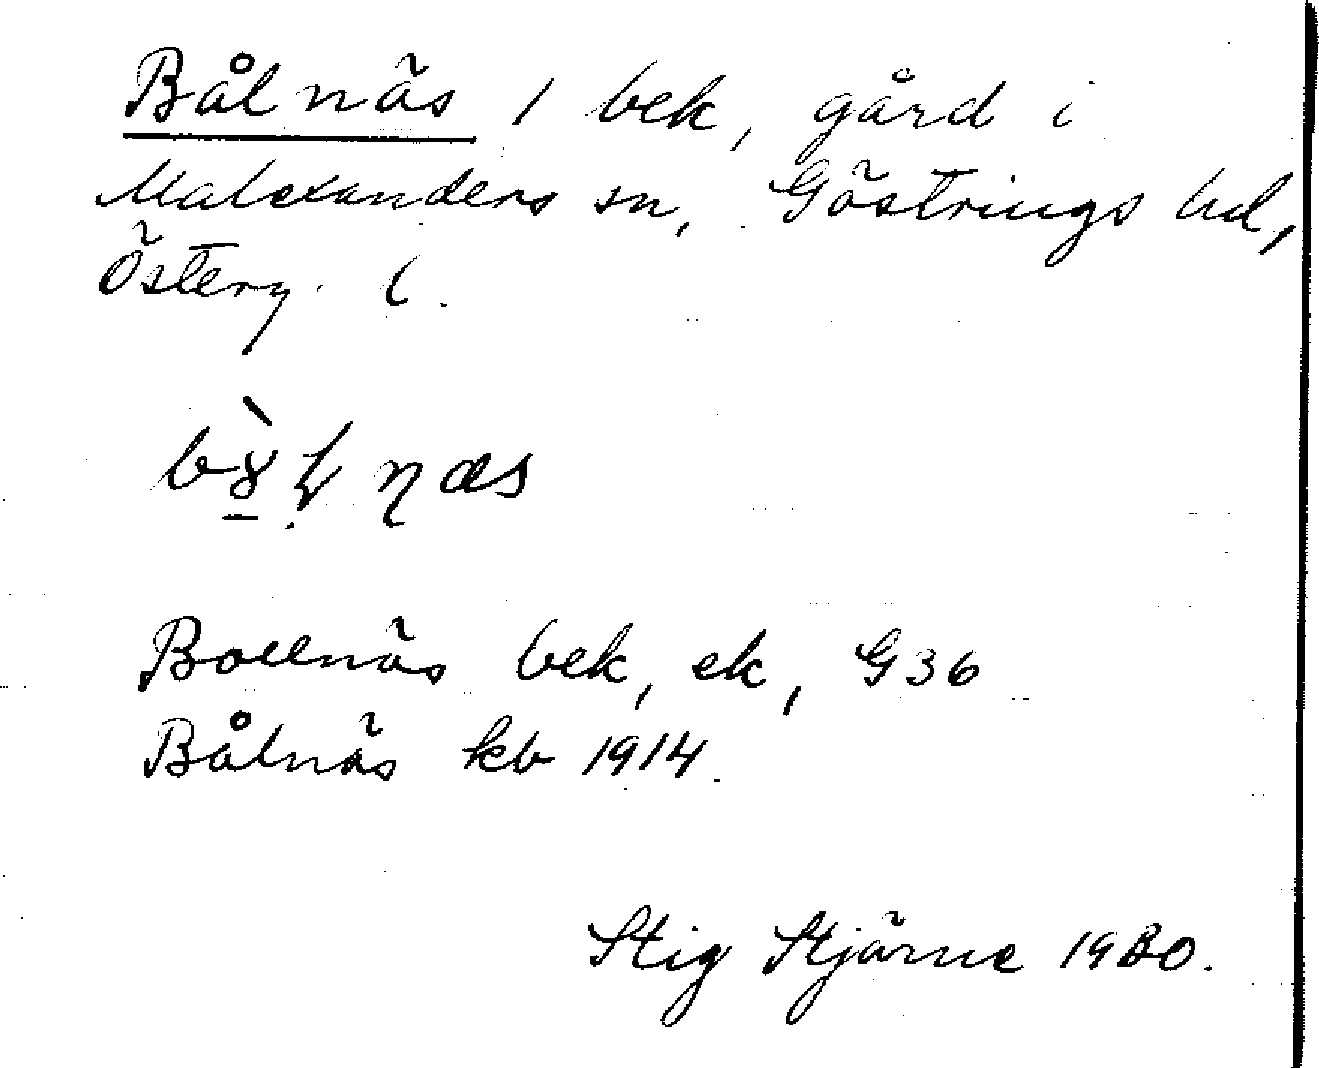 Bålnäs / bek, gård i
Malexanders sn, Göstrings hd,
Österg. l.
Bollnäs bek, ek, G36
Bålnäs kb 1914.
Stig Stjärne 1980.